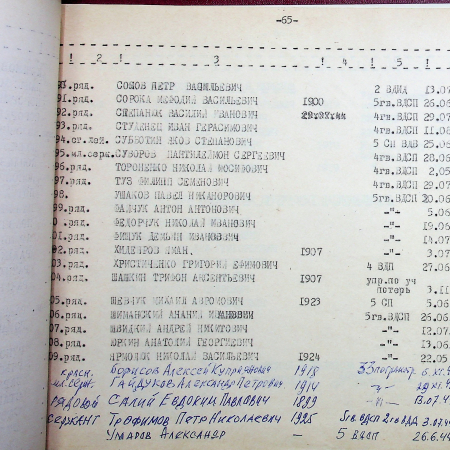 -65-
! 1 ! 2 ! 3 ! 4 ! 5 !
ряд. СОБОВ ПЕТР ВАСИЛЬЕВИЧ 2 ВДНД 13.07
91.ряд. СОРОКА МЕФОДИЙ ВАСИЛЬЕВИЧ 1900 5гв.ВДСП 26.06
92.ряд. СТЕПАНЮК ВАСИЛИЙ ИВАНОВИЧ 4гв.ВДСП 29.07
93.ряд. СТУДЕНЕЦ ИВАН ГЕРАСИМОВИЧ 4гв.ВДСП 11.08
94.ст.лей. СУББОТИН ЯКОВ СТЕПАНОВИЧ 5 СП ВДВ 25.06
95.мл.серж. СУВОРОВ ПАНТИЛЕЙМОН СЕРГЕЕВИЧ 4гв.ВДСП 28.06
96.ряд. ТОРОНЕНКО НИКОЛАЙ ИОСИФОВИЧ 4гв.ВДСП 2.05
97.ряд. ТУЗ ФИЛИПП СЕМЕНОВИЧ 4гв.ВДСП 29.07
98. УШАКОВ ПАВЕЛ НИКАНОРОВИЧ 5гв.ВДСП 20.06
99.ряд. ФАБЧУК АНТОН АНТОНОВИЧ -"- 5.06
00.ряд. ФЕДОРЧУК НИКОЛАЙ ИВАНОВИЧ -"- 19.06
01.ряд. ФИЩУК ДЕМЬЯН ИВАНОВИЧ -"- 14.07
02.ряд. ХИДЕТРОВ ИМАН. 1907 -"- 3.07
03.ряд. ХРИСТИЧЕНКО ГРИГОРИЙ ЕФИМОВИЧ 4 ВДП 27.06
04.ряд. ШАШКИН ТРИФОН АКСЕНТЬЕВИЧ 1907 упр.по уч
потерь 3.11
05.ряд. ШЕВЧУК МИХАИЛ АВРОМОВИЧ 1923 5 СП 5.06
06.ряд. ШИМАНСКИЙ АНАНИЙ ИВАНОВИЧ 5гв.ВДСП 26.06
07.ряд. ШВИДКИЙ АНДРЕЙ НИКИТОВИЧ -"- 12.07
08.ряд. ЮРКИН АНАТОЛИЙ ГЕОРГИЕВИЧ -"- 13.06
09.ряд. ЯРМОЛЮК НИКОЛАЙ ВАСИЛЬЕВИЧ 1924 -"- 22.05
красн. Борисов Алексей Куприянович 1918
мл.серж. Гайдуков Александр Петрович 1914 -"-
рядовой Салий Евдоким Павлович 1889 -"- 13.07.4
сержант Трофимов Петр Николаевич 1925 5гв.ВДСП 2гв ВДД 3.07.4
Умаров Александр - 5 ВДСП 26.6.4